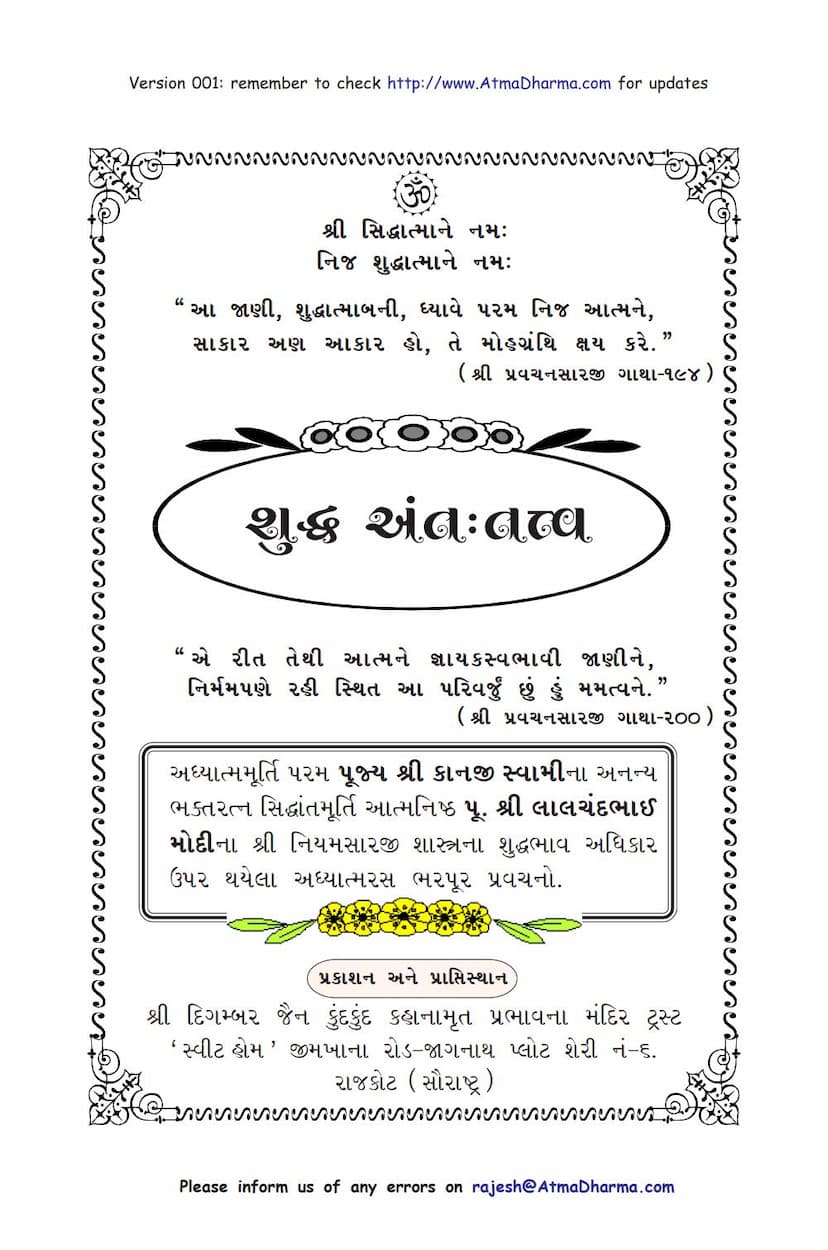 Version 001: remember to check http://www.AtmaDharma.com for updates
ૐ
શ્રી સિદ્ધાત્માને નમઃ
નિજ શુદ્ધાત્માને નમઃ
“ આ જાણી, શુદ્ધાત્માબની, ધ્યાવે પરમ નિજ આત્મને,
સાકાર અણ આકાર હો, તે મોહગ્રંથિ ક્ષય કરે.”
( શ્રી પ્રવચનસારજી ગાથા-૧૯૪ )
શુદ્ધ અંતઃતત્ત્વ
“ એ રીત તેથી આત્મને જ્ઞાયકસ્વભાવી જાણીને,
નિર્મમપણે રહી સ્થિત આ પરિવર્જું છું હું મમત્વને.”
( શ્રી પ્રવચનસારજી ગાથા-૨૦૦ )
અધ્યાત્મમૂર્તિ પરમ પૂજ્ય શ્રી કાનજી સ્વામીના અનન્ય
ભક્તરત્ન સિદ્ધાંતમૂર્તિ આત્મનિષ્ઠ પૂ. શ્રી લાલચંદભાઈ
મોદીના શ્રી નિયમસારજી શાસ્ત્રના શુદ્ધભાવ અધિકાર
ઉપર થયેલા અધ્યાત્મરસ ભરપૂર પ્રવચનો.
પ્રકાશન અને પ્રાપ્તિસ્થાન
શ્રી દિગમ્બર જૈન કુંદકુંદ કહાનામૃત પ્રભાવના મંદિર ટ્રસ્ટ
‘ સ્વીટ હોમ ’ જીમખાના રોડ-જાગનાથ પ્લોટ શેરી નં-૬.
રાજકોટ ( સૌરાષ્ટ્ર )
Please inform us of any errors on rajesh@AtmaDharma.com